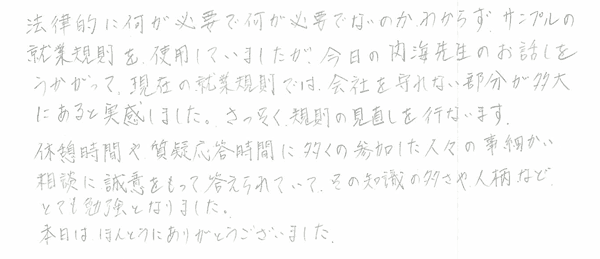 法律的に何が必要で何が必要でないのか、わからず、サンプルの
就業規則を、使用していましたが、今日の内海先生のお話しを
うかがって、現在の就業規則では、会社を守れない部分が多大
にあると実感しました。さっそく、規則の見直しを行ないます。
休憩時間や質疑応答時間に多くの参加した人々の事細かい
相談に誠意をもって答えられていて、その知識の多さや、人柄など、
とても勉強となりました。
本日はほんとうにありがとうございました。